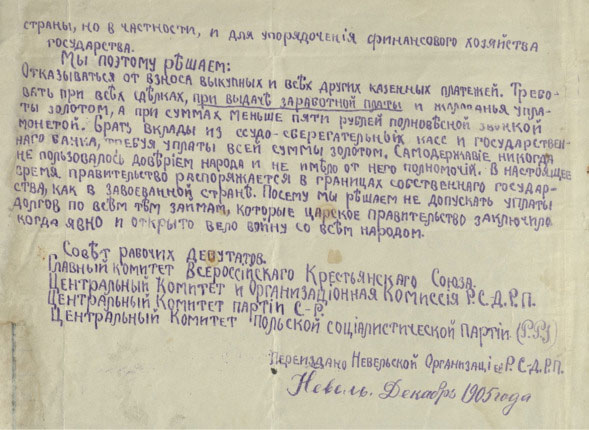 страны, но в частности, и для упорядоченія финансового хозяйства
государства.
Мы поэтому рѣшаем:
Отказываться от взноса выкупных и всѣх других казенных платежей. Требо-
вать при всѣх сдѣлках, при выдаче заработной платы и жалованья упла-
ты золотом, а при суммах меньше пяти рублей полновѣсной звонкой
монетой. Брать вклады из ссудо-сберегательных касс и государствен-
наго банка, требуя уплаты всей суммы золотом. Самодержавіе никогда
не пользовалось довѣріем народа и не имѣло от него полномочій. В настоящее
время правительство распоряжается в границах собственнаго государ-
ства, как в завоеванной странѣ. Посему мы рѣшаем не допускать уплаты
долгов по всѣм тѣм займам, которые царское правительство заключило
когда явно и открыто вело войну со всѣм народом.
Совѣт рабочих депутатов.
Главный комитет Всероссійскаго Крестьянскаго Союза.
Центральный Комитет и Организаціонная Комиссія Р.С.Д.Р.П.
Центральный Комитет партіи С-Р.
Центральный Комитет Польской соціалистической Партіи (P.P.S)
Переиздано Невельской Организаціей Р.С-Д.Р.П.
Невель. Декабрь 1905 года